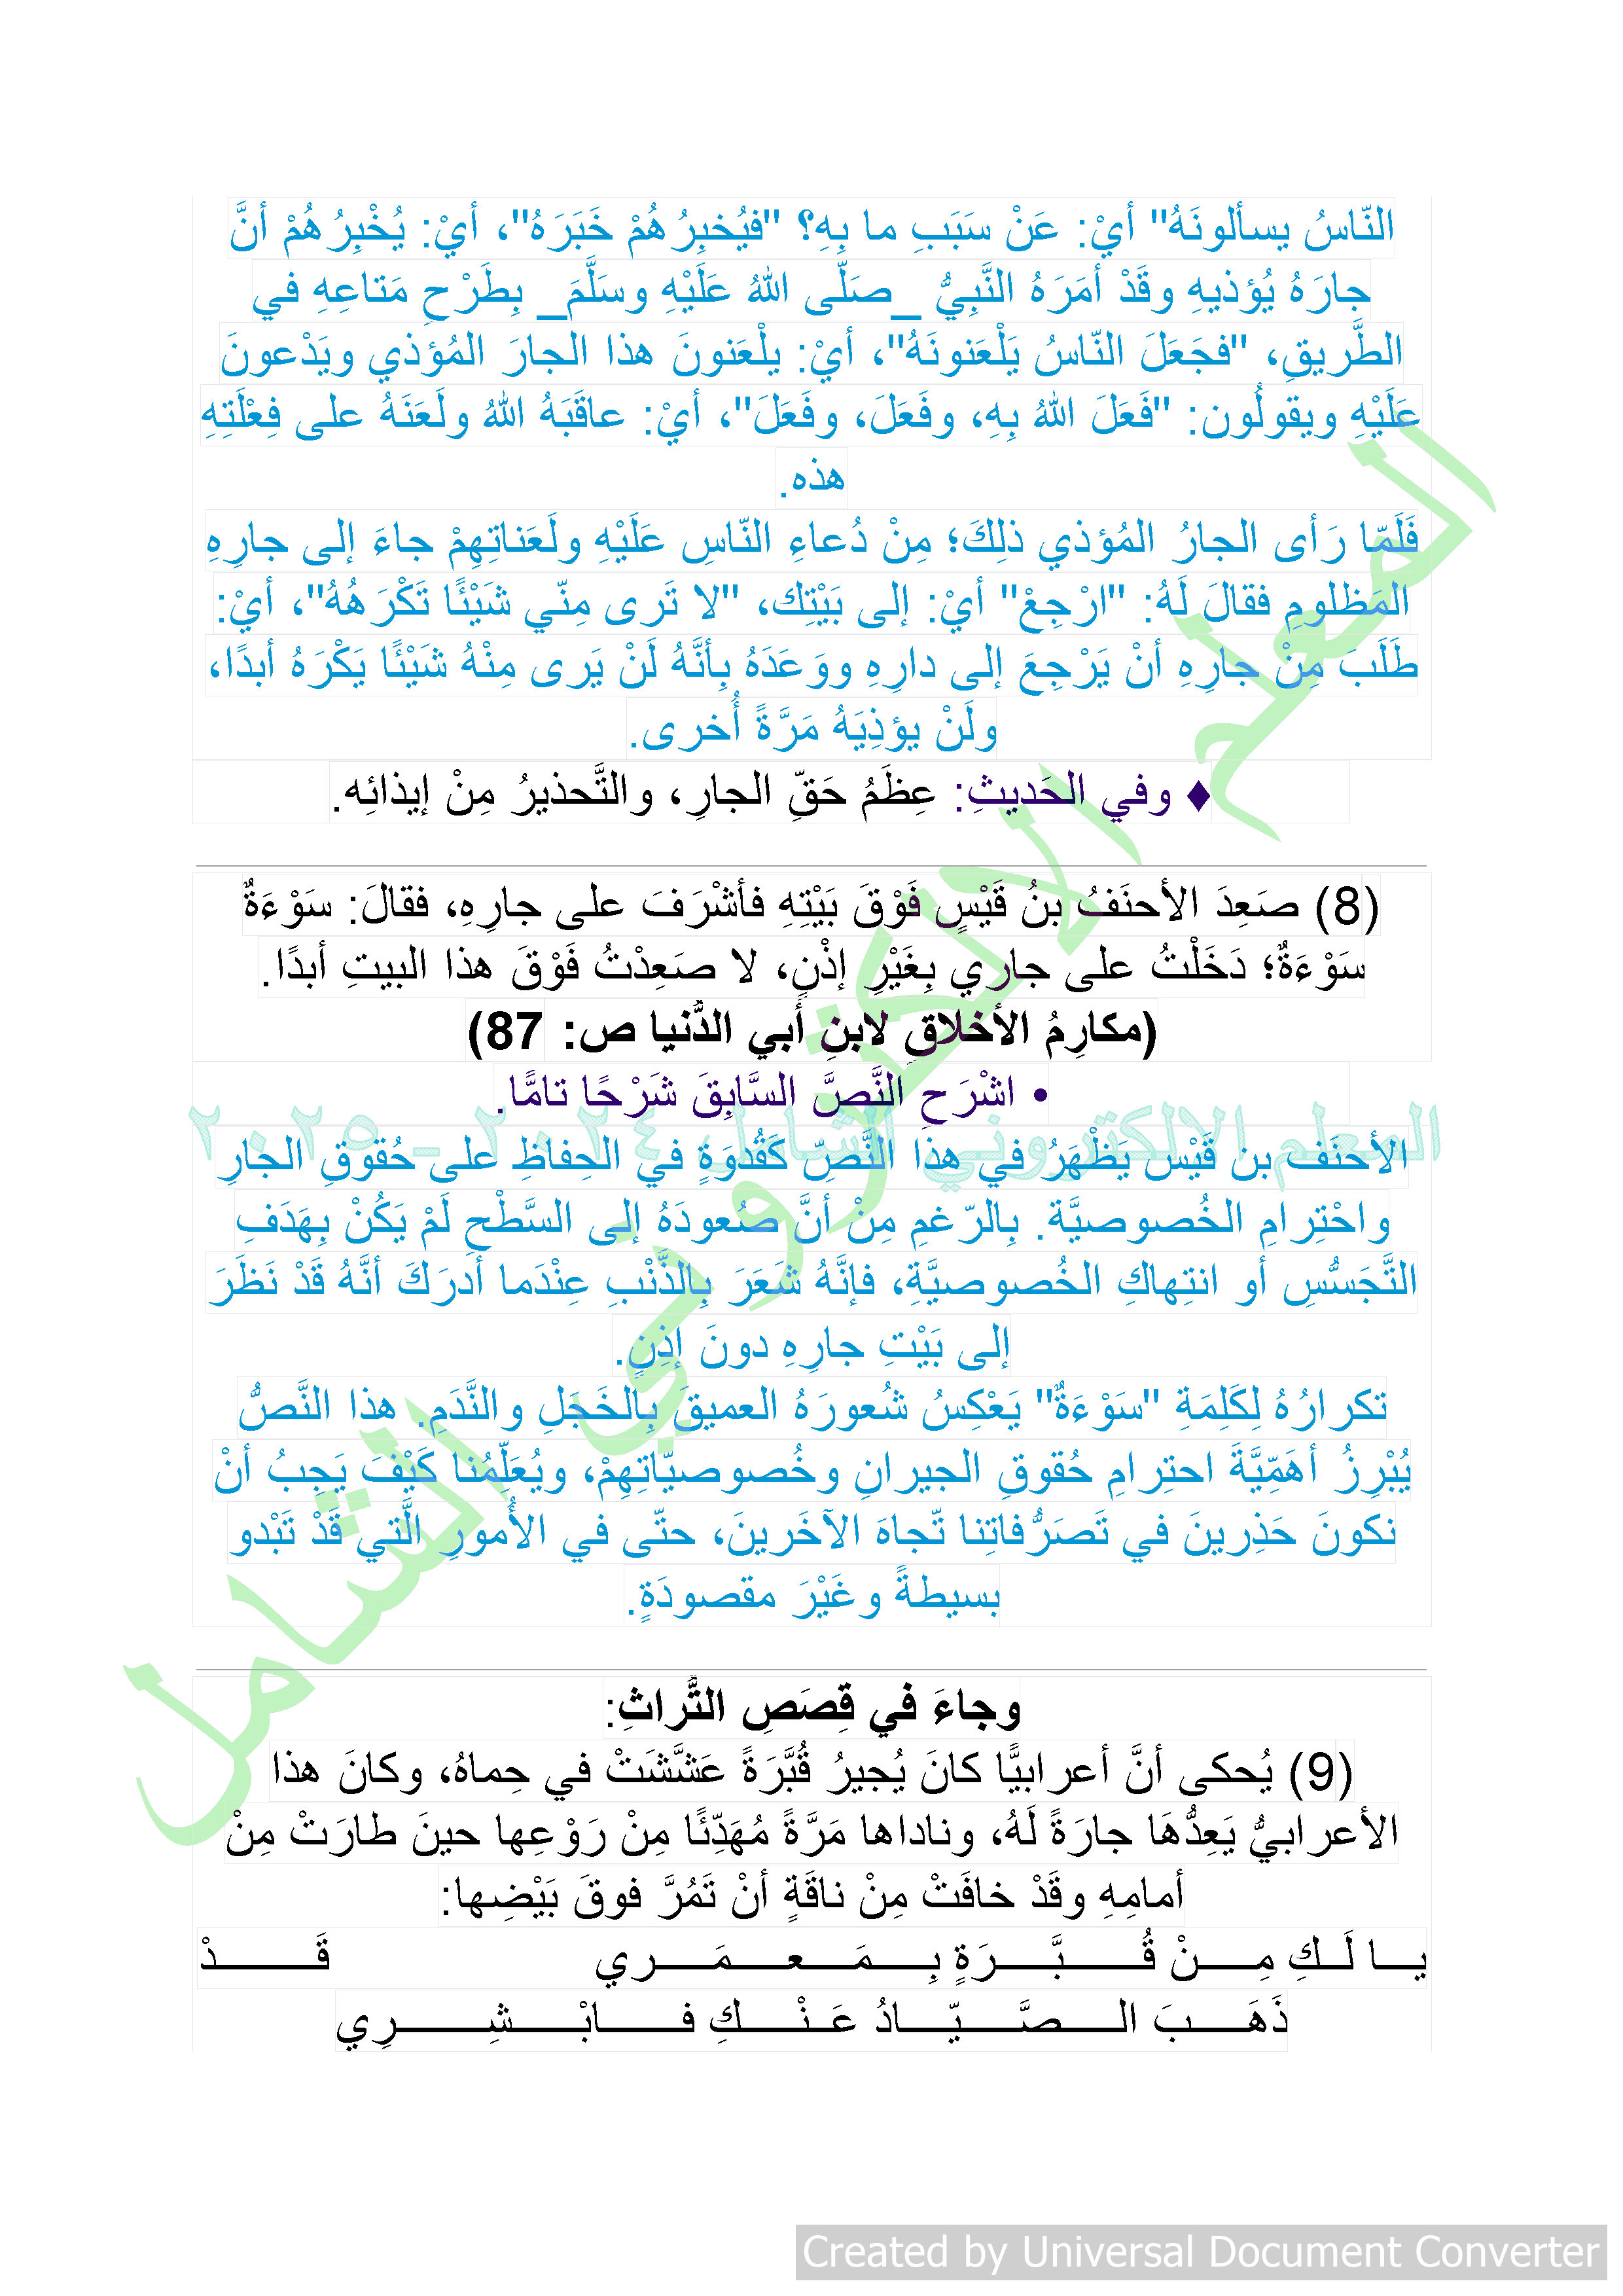 النّاسُ يسألونَهُ" أيْ: عَنْ سَبَبِ ما بِهِ؟ "فيُخبِرُهُمْ خَبَرَهُ"، أيْ: يُخْبِرُهُمْ أنَّ
جارَهُ يُؤذيهِ وقَدْ أمَرَهُ النَّبِيُّ _صَلّى اللهُ عَلَيْهِ وسَلَّمَ_ بِطَرْحِ مَتاعِهِ في
الطَّريقِ، "فجَعَلَ النّاسُ يَلْعَنونَهُ"، أيْ: يلْعَنونَ هذا الجارَ المُؤذي ويَدْعونَ
عَلَيْهِ ويقولُون: "فَعَلَ اللهُ بِهِ، وفَعَلَ، وفَعَلَ"، أيْ: عاقَبَهُ اللهُ ولَعَنَهُ على فِعْلَتِهِ
هذه.
فَلَمّا رَأى الجارُ المُؤذي ذلِكَ؛ مِنْ دُعاءِ النّاسِ عَلَيْهِ ولَعَناتِهِمْ جاءَ إلى جارِهِ
المَظلومِ فقالَ لَهُ: "ارْجِعْ" أيْ: إلى بَيْتِك، "لا تَرى مِنّي شَيْئًا تَكْرَهُهُ"، أيْ:
طَلَبَ مِنْ جارِهِ أنْ يَرْجِعَ إلى دارِهِ ووَعَدَهُ بِأنَّهُ لَنْ يَرى مِنْهُ شَيْئًا يَكْرَهُ أبدًا،
ولَنْ يؤذِيَهُ مَرَّةً أُخرى.
♦ وفي الحَديثِ: عِظَمُ حَقِّ الجارِ، والتَّحذيرُ مِنْ إيذائِه.
(8) صَعِدَ الأحنَفُ بنُ قَيْسٍ فَوْقَ بَيْتِهِ فأشْرَفَ على جارِهِ، فقالَ: سَوْءَةٌ
سَوْءَةٌ؛ دَخَلْتُ على جاري بِغَيْرِ إذْنٍ، لا صَعِدْتُ فَوْقَ هذا البيتِ أبدًا.
(مكارِمُ الأخلاقِ لابنِ أبي الدُّنيا ص: 87)
• اشْرَحِ النَّصَّ السَّابِقَ شَرْحًا تامًّا.
المعلم الالكتروني الشامل ٢٠٢٤ - ٢٠٢٥
الأحنَف بن قَيْس يَظْهَرُ في هذا النَّصِّ كَقُدوَةٍ في الحِفاظِ على حُقوقِ الجارِ
واحْتِرامِ الخُصوصيَّة. بِالرّغمِ مِنْ أنَّ صُعودَهُ إلى السَّطْحِ لَمْ يَكُنْ بِهَدَفِ
التَّجَسُّسِ أو انتِهاكِ الخُصوصيَّةِ، فإنَّهُ شَعَرَ بِالذَّنْبِ عِنْدَما أدرَكَ أنَّهُ قَدْ نَظَرَ
إلى بَيْتِ جارِهِ دونَ إذِنٍ.
تكرارُهُ لِكَلِمَةِ "سَوْءَةٌ" يَعْكِسُ شُعورَهُ العميقَ بِالخَجَلِ والنَّدَمِ. هذا النَّصُّ
يُبْرِزُ أهَمِّيَّةَ احتِرامِ حُقوقِ الجيرانِ وخُصوصيّاتِهِمْ، ويُعَلِّمُنا كَيْفَ يَجِبُ أنْ
نكونَ حَذِرينَ في تَصَرُّفاتِنا تّجاهَ الآخَرينَ، حتّى في الأُمورِ الَّتي قَدْ تَبْدو
بسيطةً وغَيْرَ مقصودَةٍ.
المعلم الالكتروني الشامل
وجاءَ في قِصَصِ التُّراثِ:
(9) يُحكى أنَّ أعرابيًّا كانَ يُجيرُ قُبَّرَةً عَشَّشَتْ في حِماهُ، وكانَ هذا
الأعرابيُّ يَعِدُّهَا جارَةً لَهُ، وناداها مَرَّةً مُهَدِّئًا مِنْ رَوْعِها حينَ طارَتْ مِنْ
أمامِهِ وقَدْ خافَتْ مِنْ ناقَةٍ أنْ تَمُرَّ فوقَ بَيْضِها:
يـا لَـكِ مِـنْ قُـبَّـرَةٍ بِـمَـعـمَـري قَـدْ
ذَهَـبَ الـصَّـيّـادُ عَـنْـكِ فـابْـشِـرِي
Created by Universal Document Converter